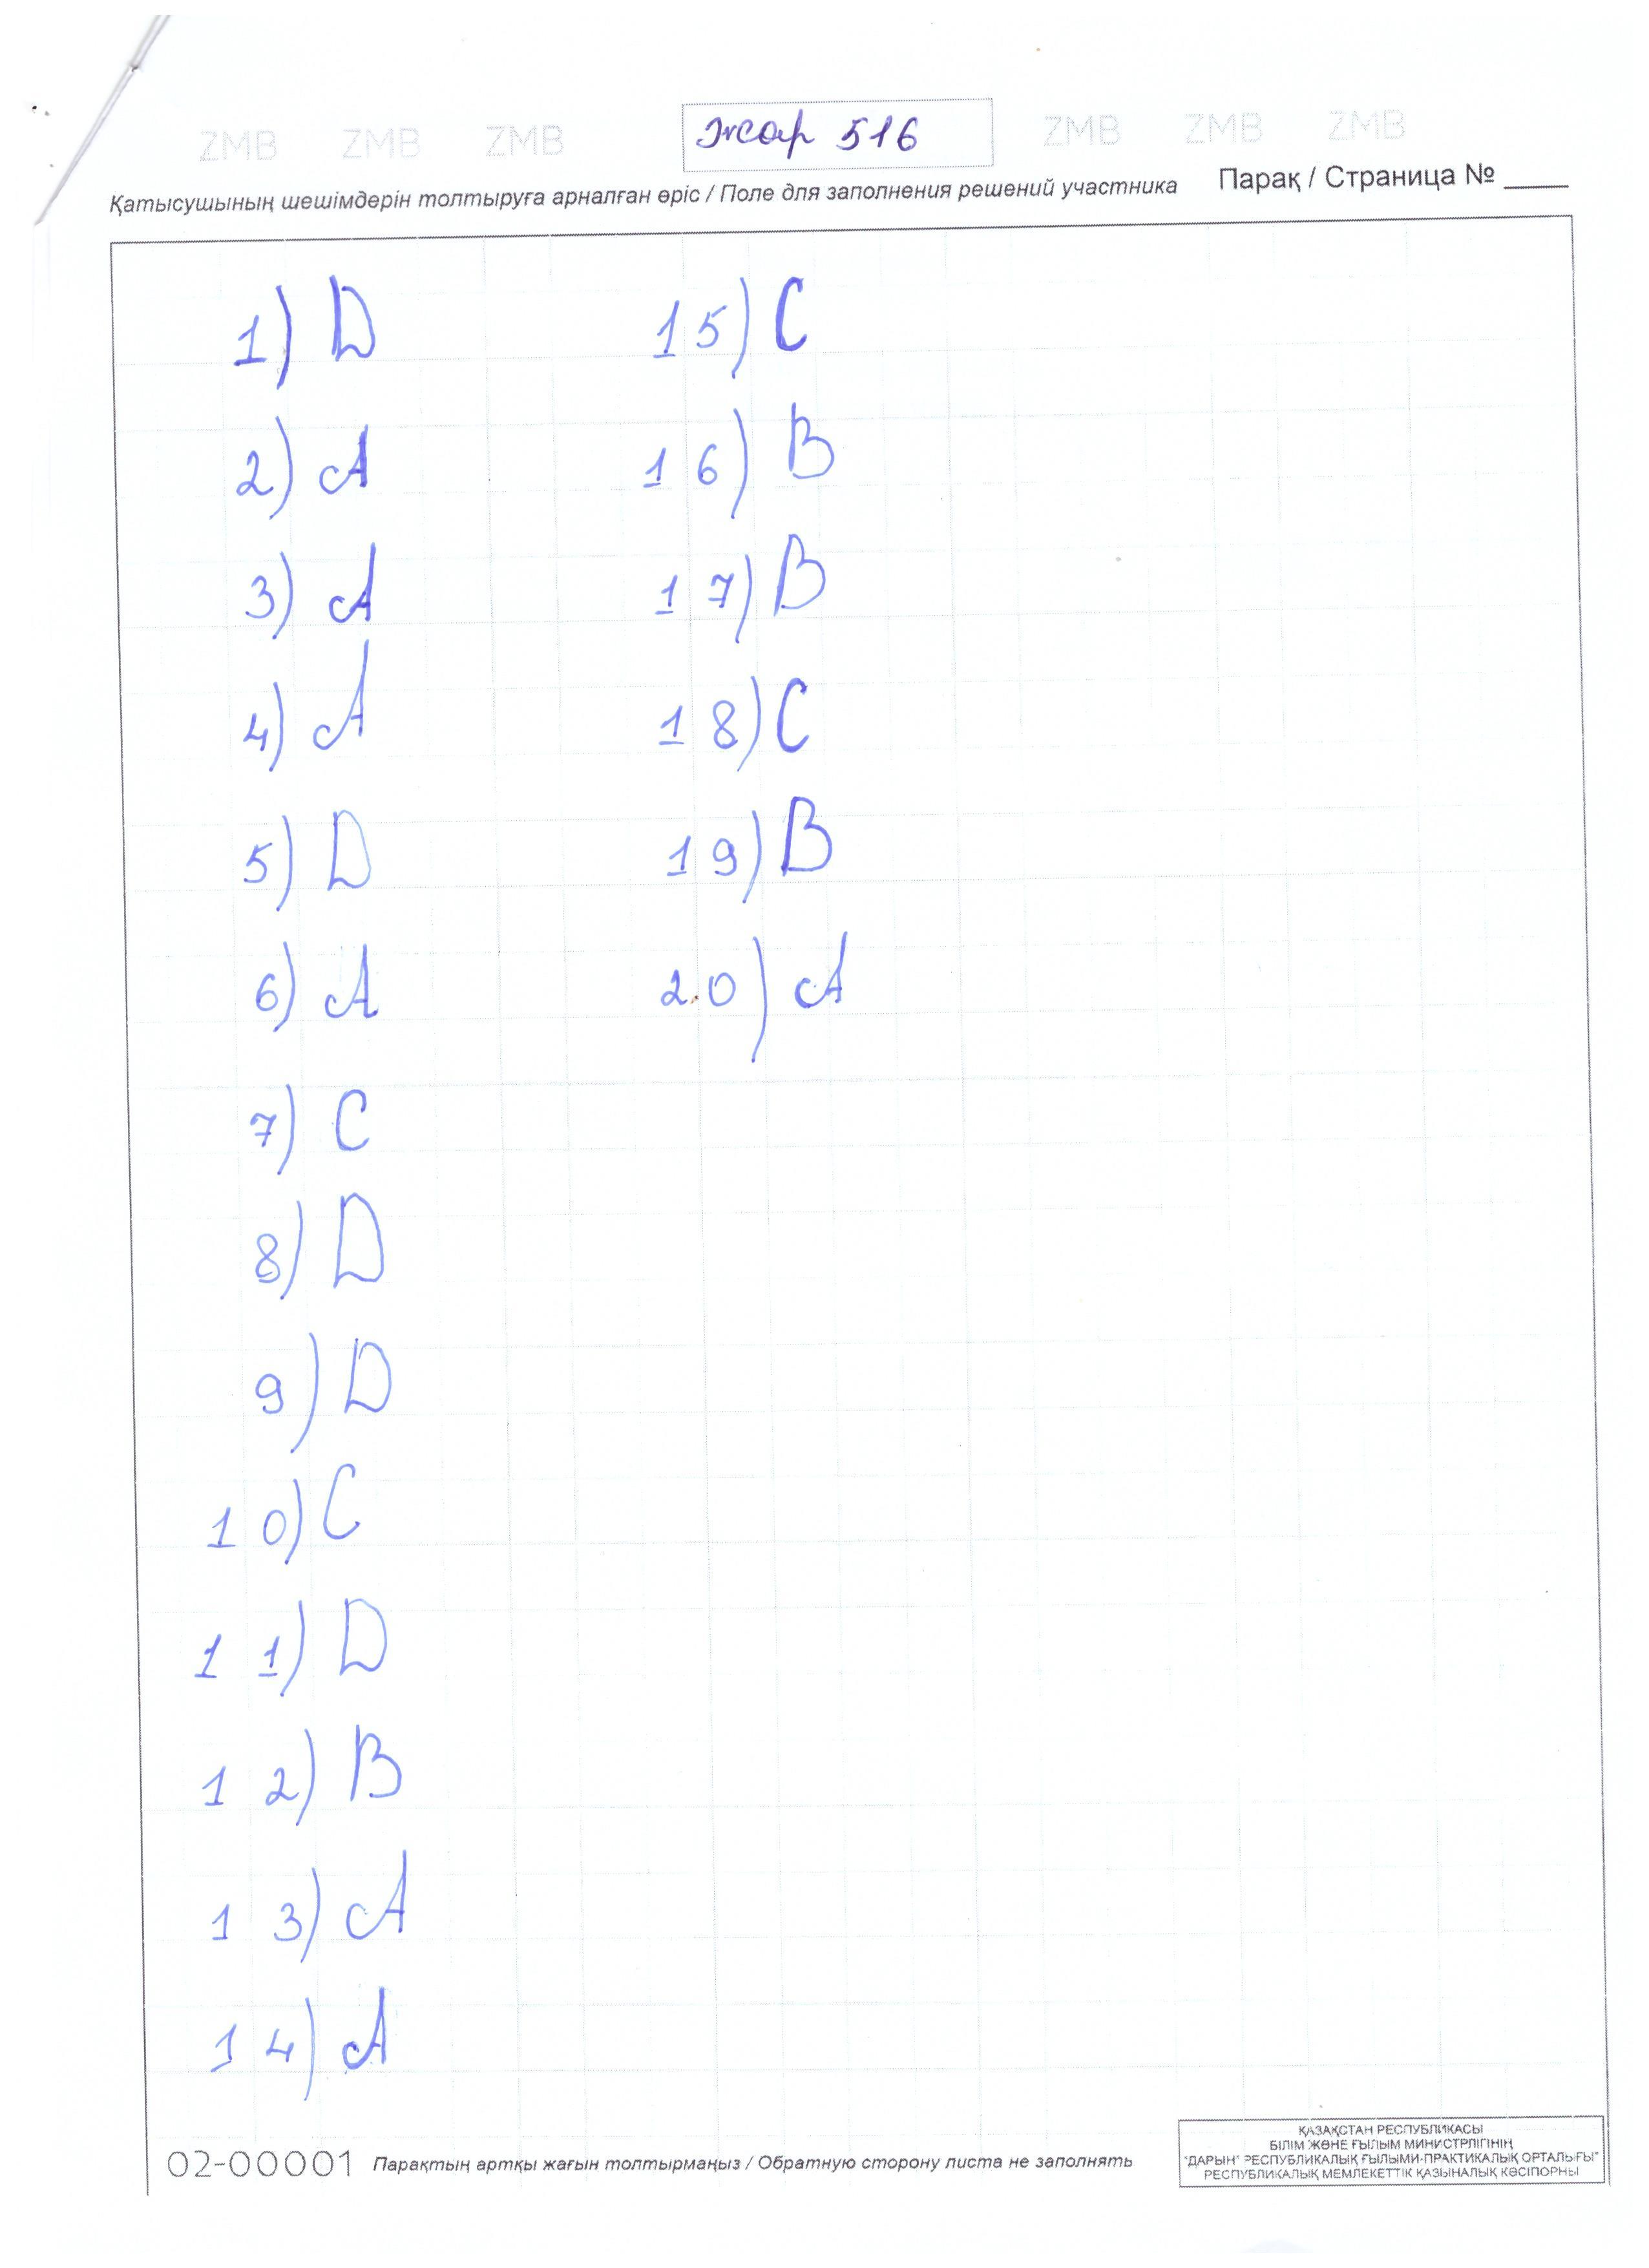 ZMB ZMB ZMB жар 516 ZMB ZMB ZMB
Қатысушының шешімдерін толтыруға арналған өріс / Поле для заполнения решений участника Парақ / Страница № ____
1) D
2) A
3) A
4) A
5) D
6) A
7) C
8) D
9) D
10) C
11) D
12) B
13) A
14) A
15) C
16) B
17) B
18) C
19) B
20) A
02-00001 Парақтың артқы жағын толтырмаңыз / Обратную сторону листа не заполнять
ҚАЗАҚСТАН РЕСПУБЛИКАСЫ
БІЛІМ ЖӘНЕ ҒЫЛЫМ МИНИСТРЛІГІНІҢ
"ДАРЫН" РЕСПУБЛИКАЛЫҚ ҒЫЛЫМИ-ПРАКТИКАЛЫҚ ОРТАЛЫҒЫ"
РЕСПУБЛИКАЛЫҚ МЕМЛЕКЕТТІК ҚАЗЫНАЛЫҚ КӘСІПОРНЫ